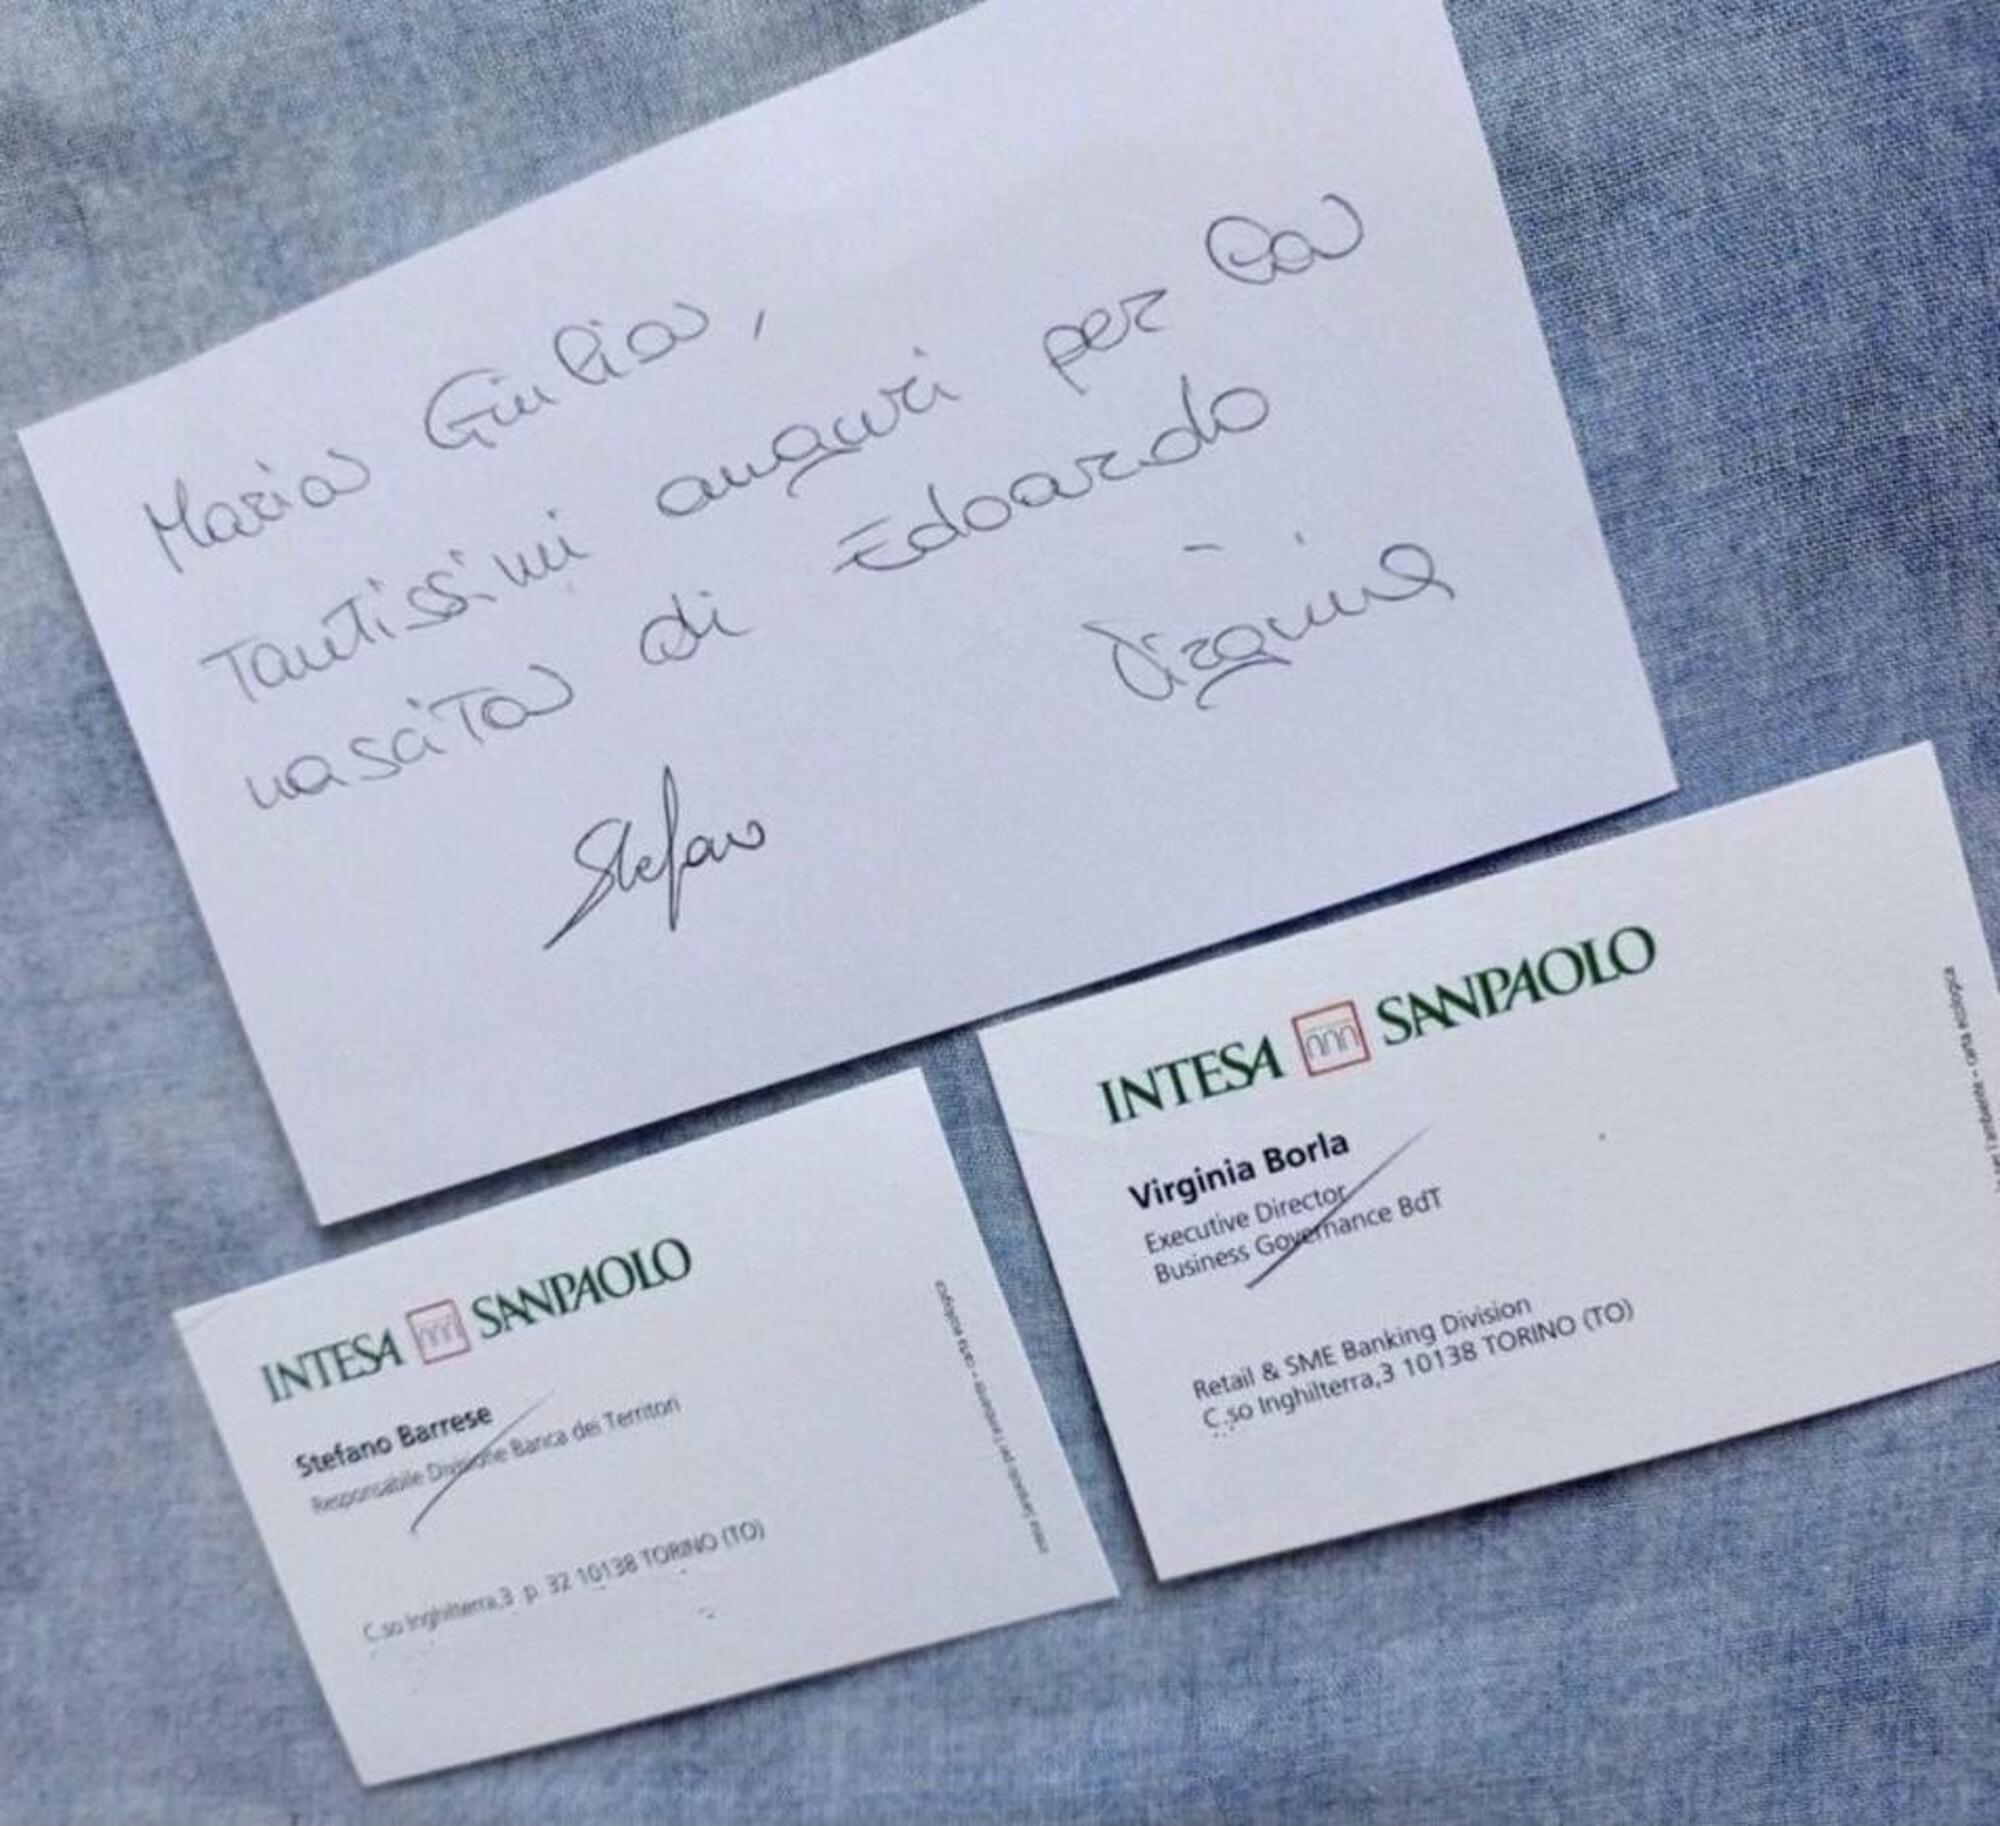 Maria Giulia,
Tantissimi auguri per la
nascita di Edoardo
Virginia
Stefano
INTESA SANPAOLO
Stefano Barrese
Responsabile Divisione Banca dei Territori
C.so Inghilterra,3 p. 32 10138 TORINO (TO)
per l'ambiente - carta ecologica
INTESA SANPAOLO
Virginia Borla
Executive Director
Business Governance BdT
Retail & SME Banking Division
C.so Inghilterra,3 10138 TORINO (TO)
per l'ambiente - carta ecologica